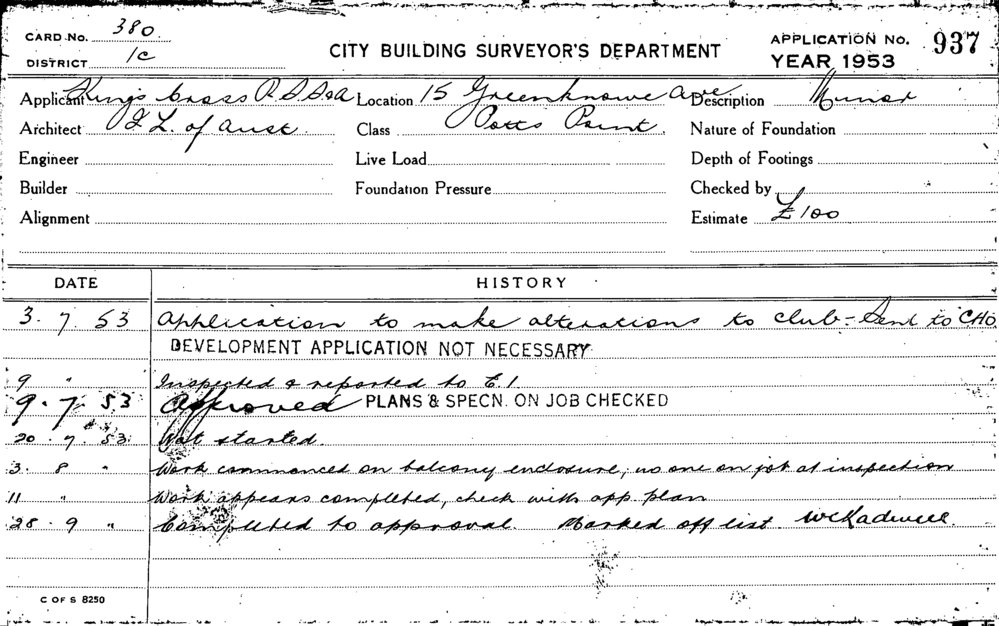 CARD No. 380
DISTRICT 1C
CITY BUILDING SURVEYOR'S DEPARTMENT
APPLICATION No. 937
YEAR 1953
Applicant Kings Cross R.S.S. & A Location 15 Greenknowe Ave Description Minor
Architect I L. of Aust Class Potts Point. Nature of Foundation
Engineer Live Load Depth of Footings
Builder Foundation Pressure Checked by
Alignment Estimate £100
DATE HISTORY
3. 7 53 Application to make alterations to club - Sent to CHO
DEVELOPMENT APPLICATION NOT NECESSARY
9 " Inspected & reported to E.1
9. 7. 53 Approved PLANS & SPECN. ON JOB CHECKED
20. 7 53. Not started.
3. 8 " Work commenced on balcony enclosure, no one on job at inspection
11 " Work appears completed, check with app. plan
28. 9 " Completed to approval Marked off list
C OF S 8250